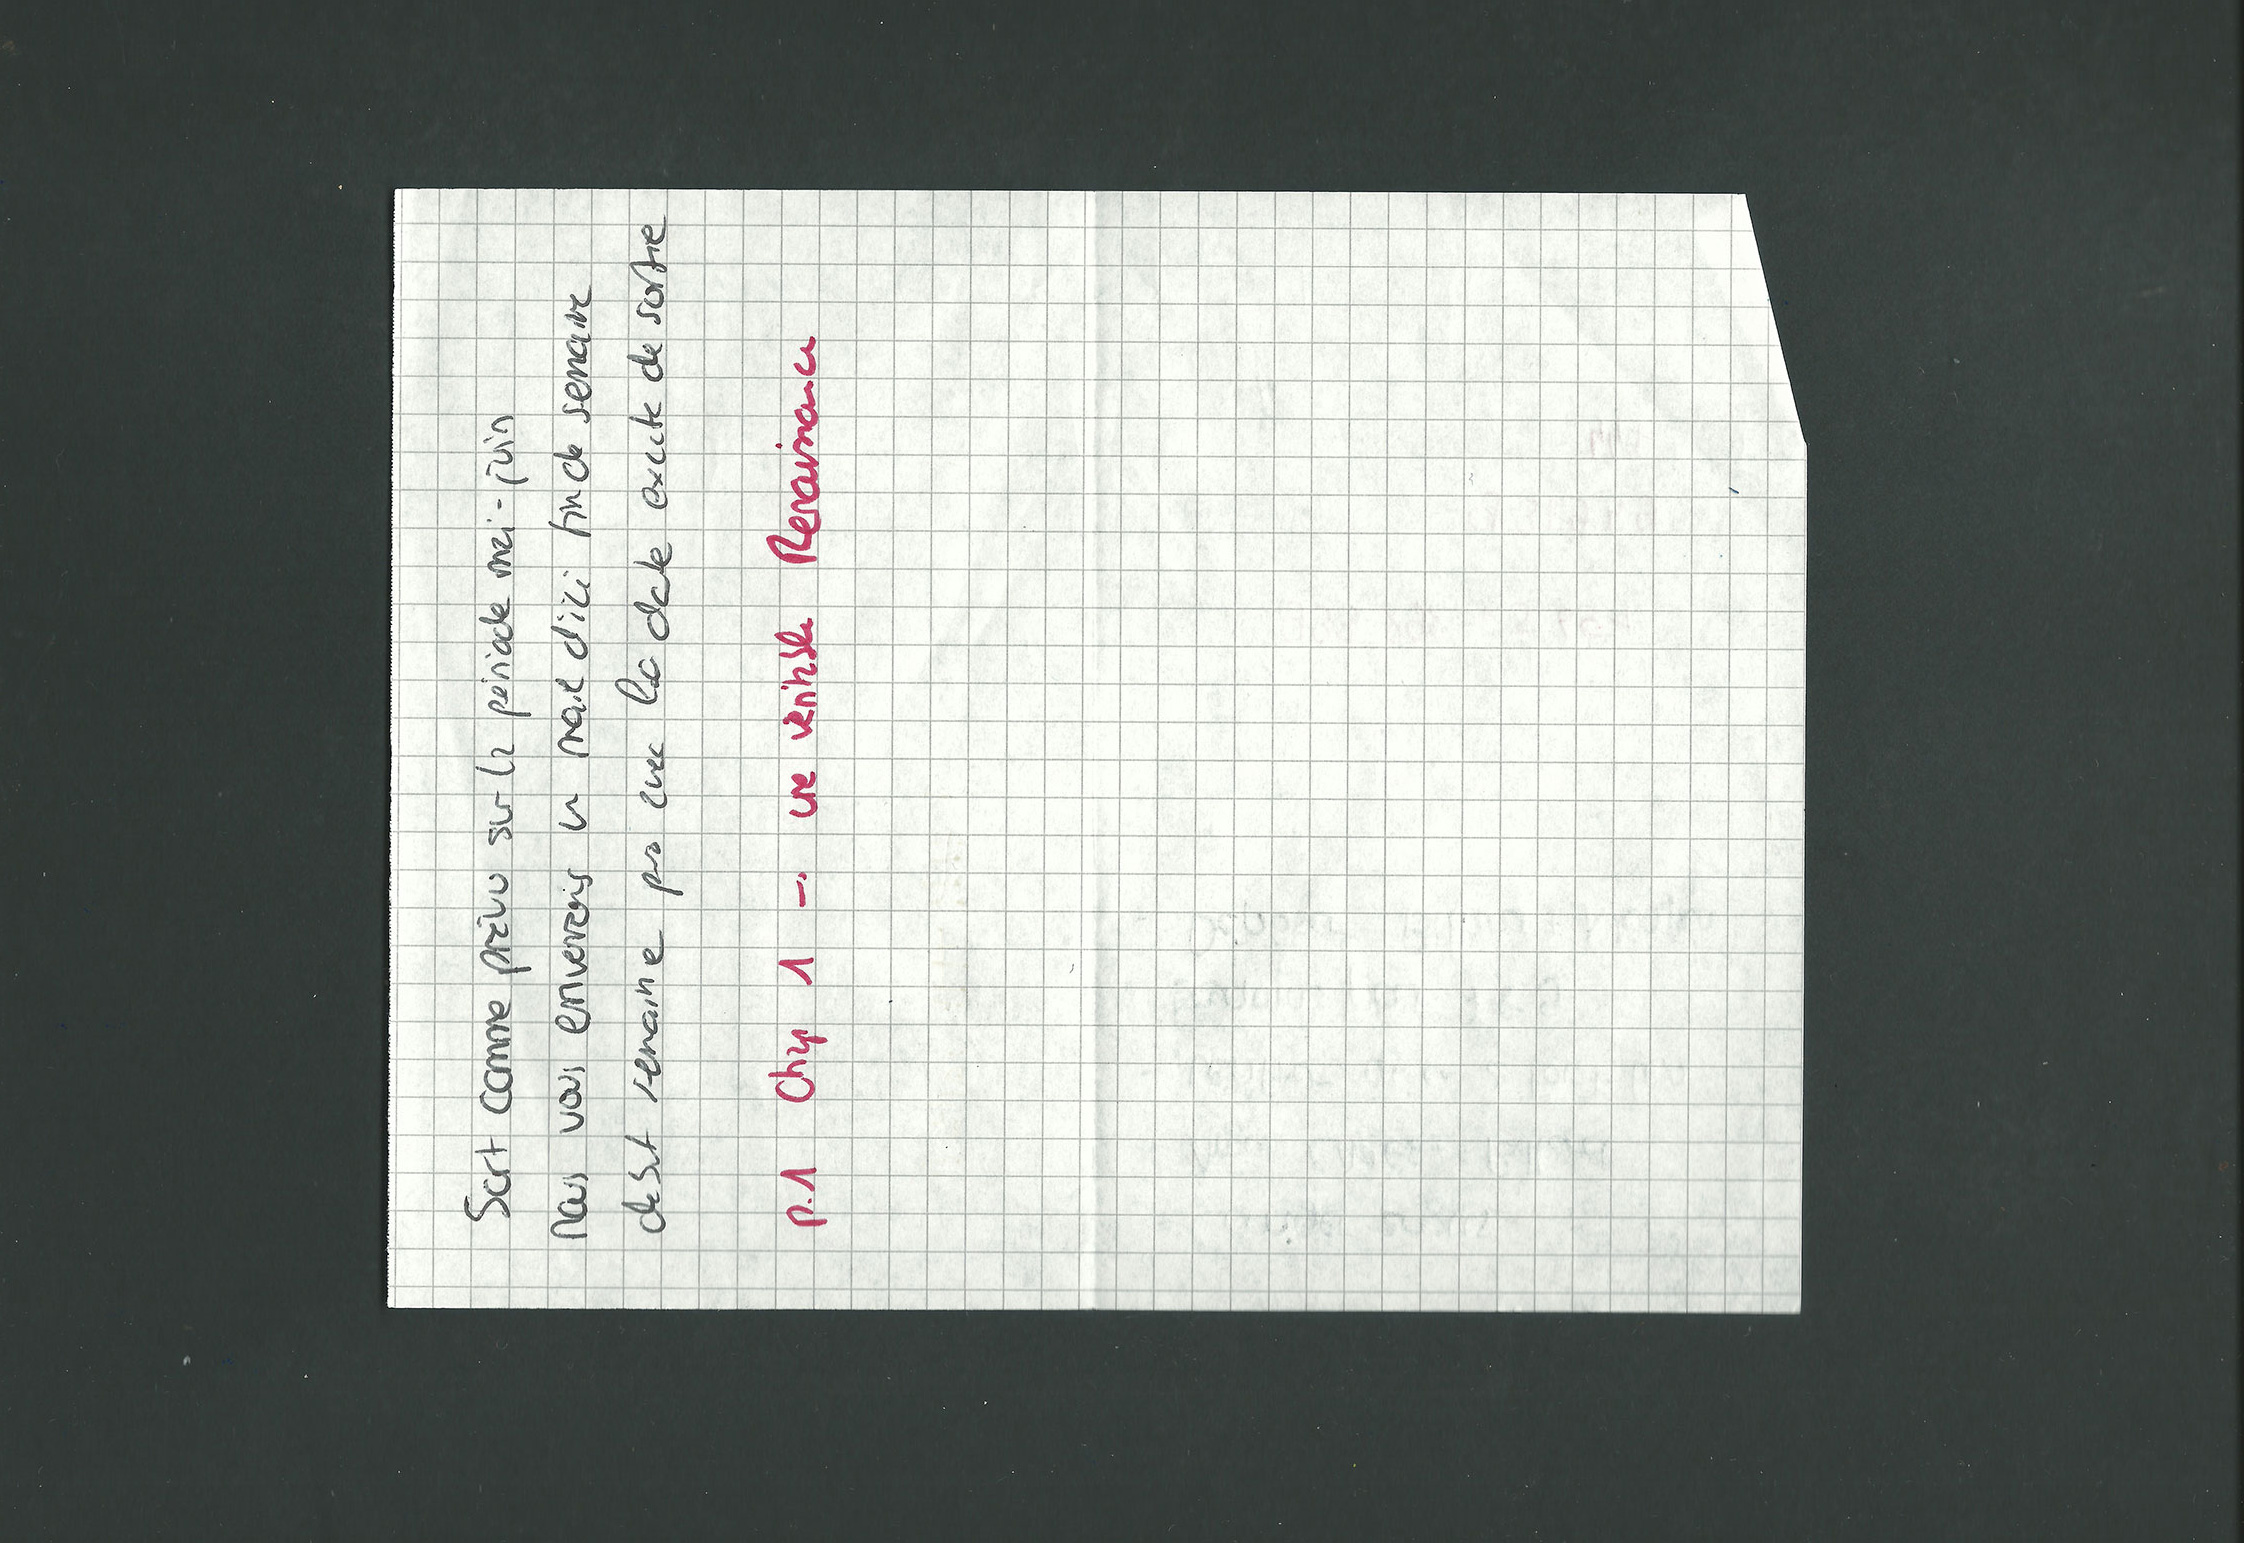 Sort comme prévu sur la période mai-juin
Nous vous enverrons un mail d'ici fin de semaine
début semaine pro avec la date exacte de sortie
p.1 Chap 1 -. une véritable Renaissance